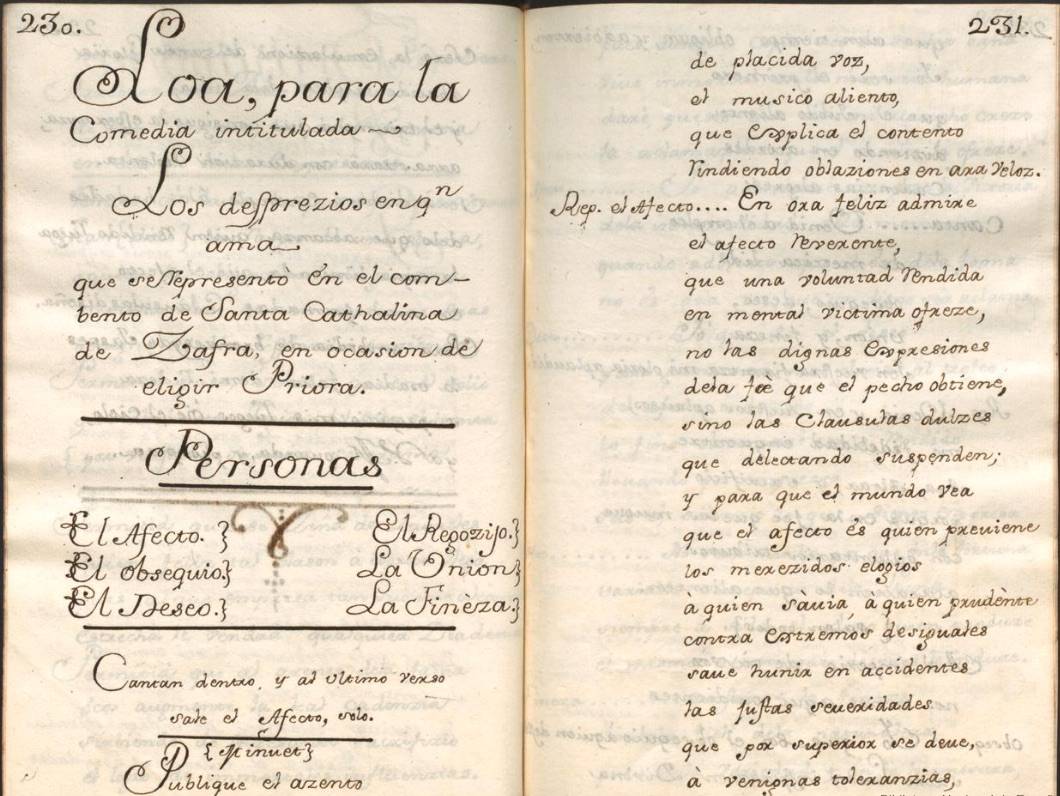 230.
Loa, para la
Comedia intitulada
Los desprezios en qn
ama
que se representó en el com-
bento de Santa Cathalina
de Zafra, en ocasion de
eligir Priora.
Personas
El Afecto.}
El obsequio.}
El Deseo.}
El Regozijo.}
La Union}
La Finèza.}
Cantan dentro, y al ultimo verso
sale el Afecto, solo.
{Minuet}
Publique el azento
231.
de placida voz,
el musico aliento,
que Explica el contento
rindiendo oblaziones en ara veloz.
Rep. el Afecto.... En ora feliz admire
el afecto reverente,
que una voluntad rendida
en mental victima ofreze,
no las dignas Expresiones
dela feè que el pecho obtiene,
sino las Clausulas dulzes
que delectando suspenden;
y para que el mundo vea
que el afecto és quien previene
los merezidos elogios
a quien sàuia, a quien prudènte
contra Estremos desiguales
saue hunir en accidentes
las justas seueridades
que por superior se deue,
à venignas toleranzias,